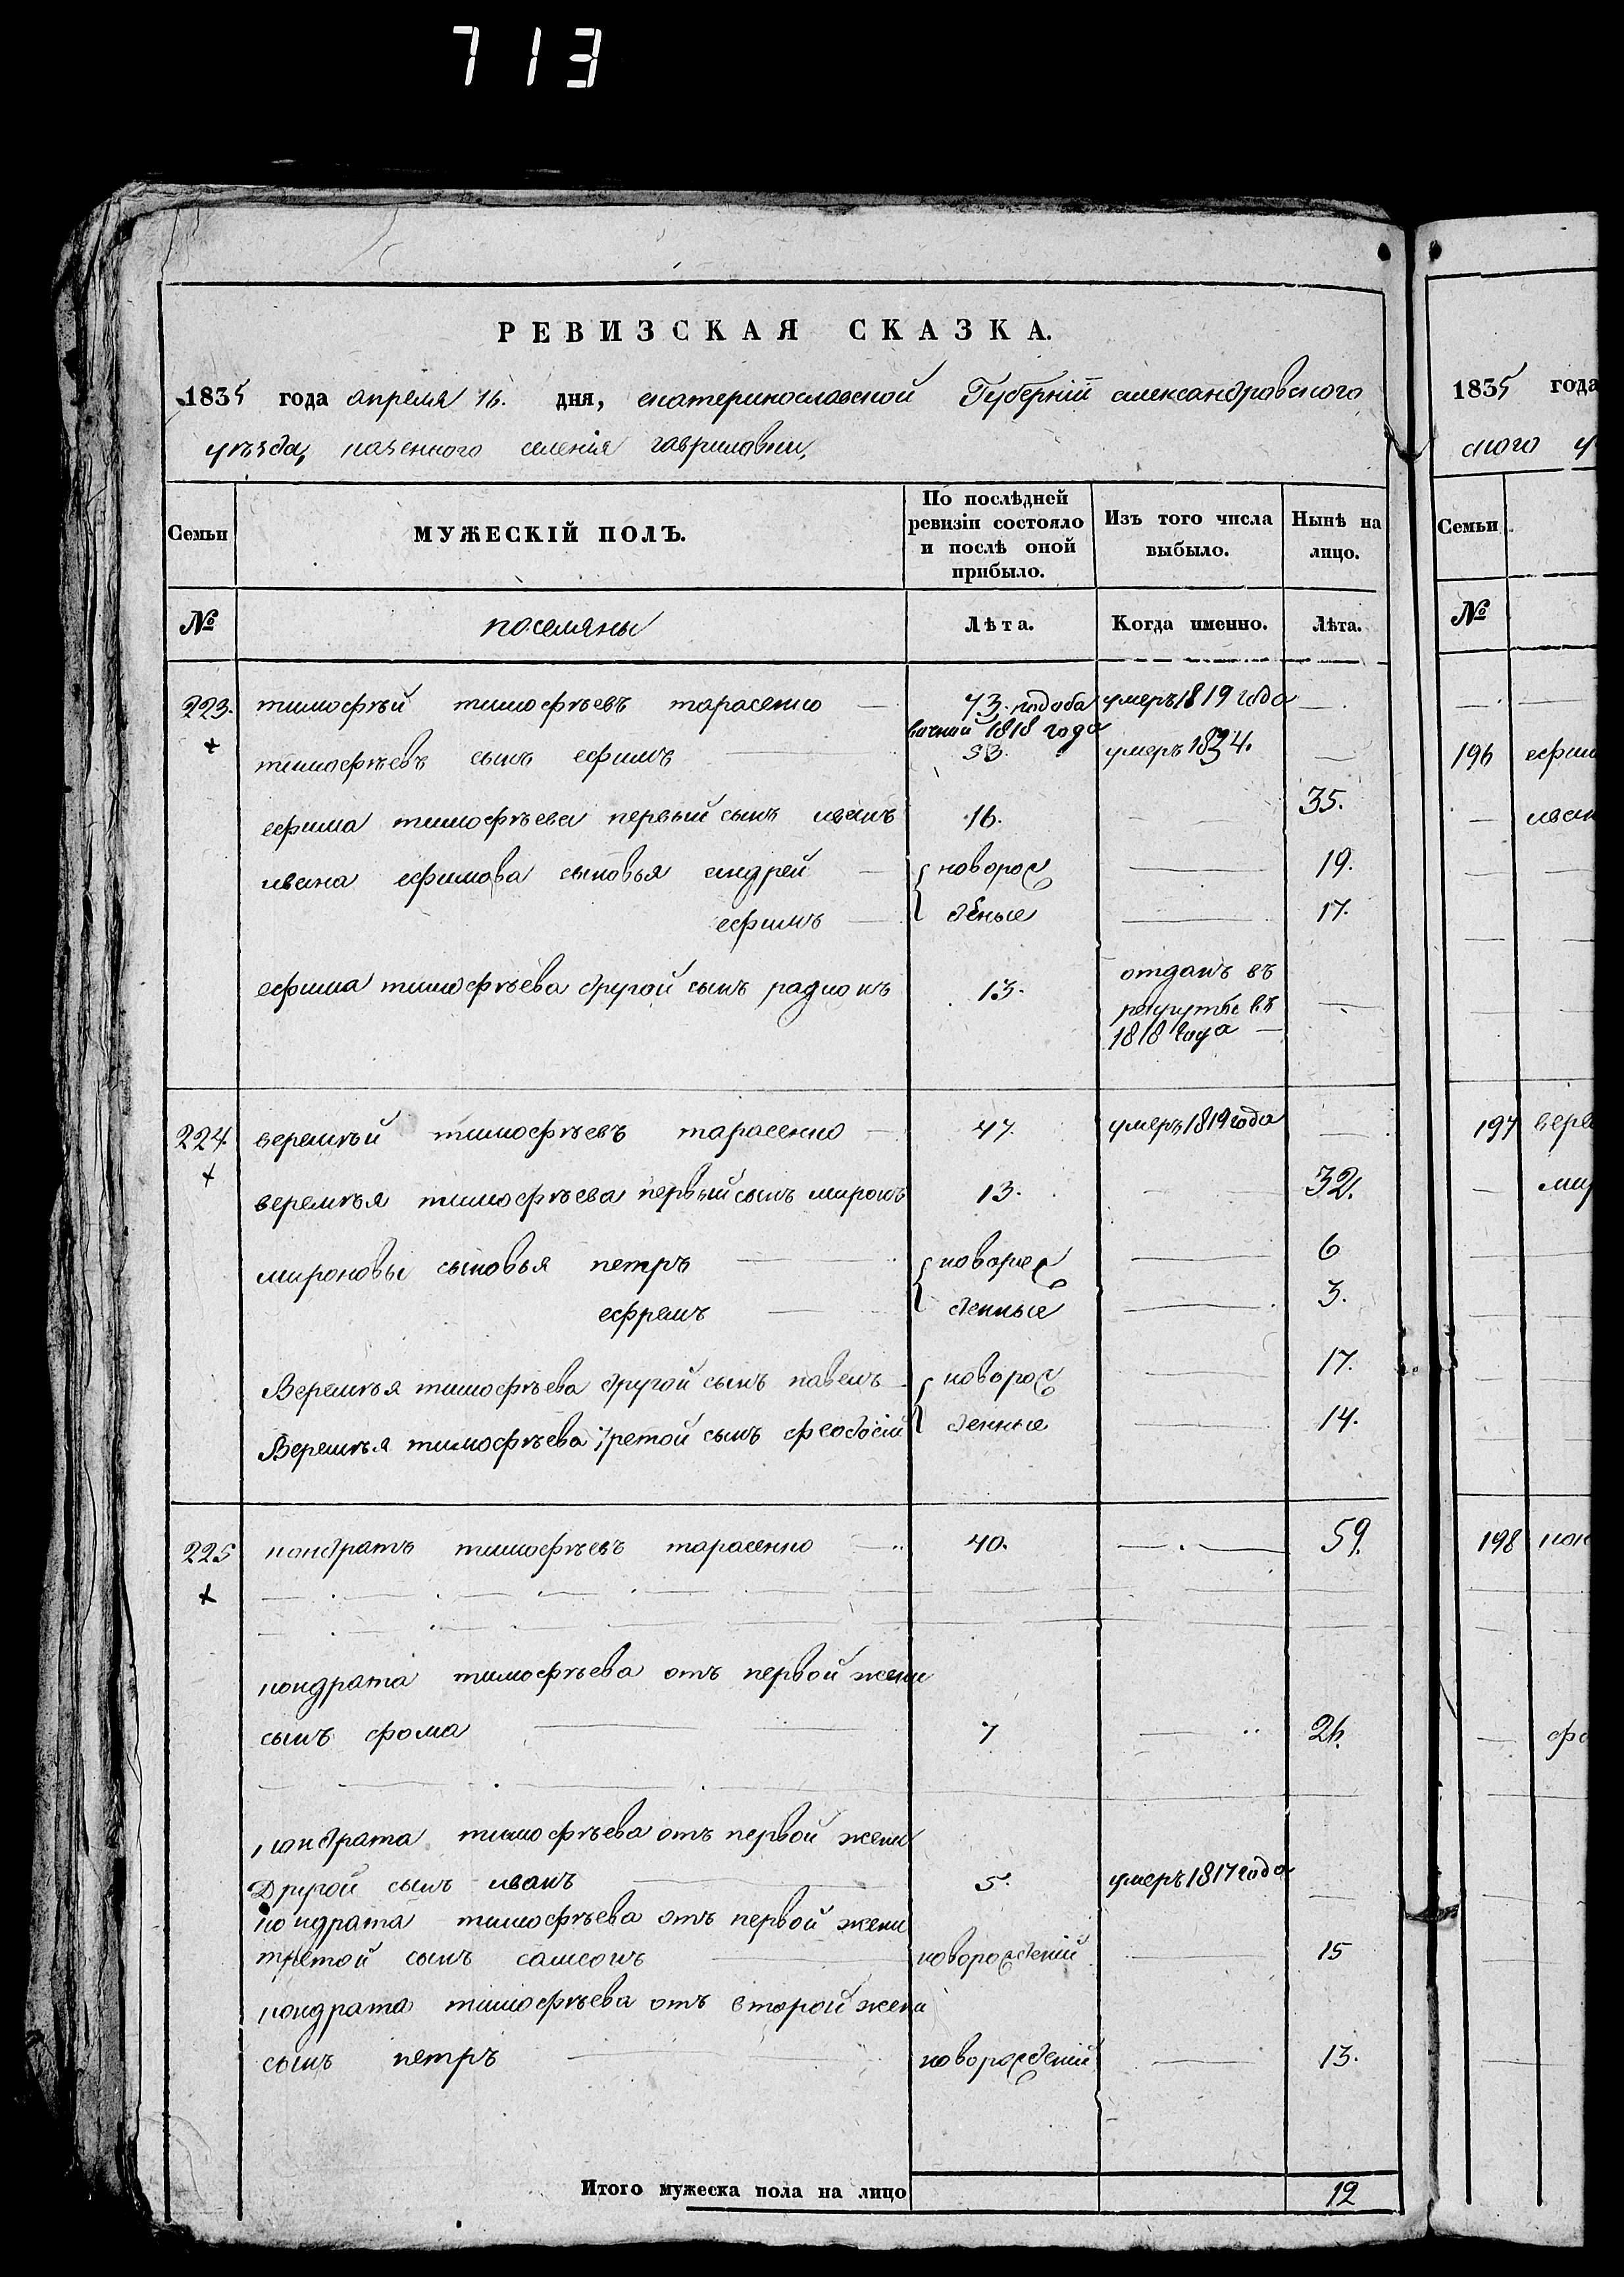 713
РЕВИЗСКАЯ СКАЗКА.
1835 года апреля 16. дня, екатеринославской Губернїй александровского
уѣзда, казенного селенія гавриловки,
Семьи МУЖЕСКІЙ ПОЛЪ. По послѣдней ревизіи состояло и послѣ оной прибыло. Изъ того числа выбыло. Нынѣ на лицо.
№ поселяны Лѣта. Когда именно. Лѣта.
223. тимофѣй тимофѣевъ тарасенко — 73. умеръ 1819 года —
вочной 1818 года
тимофѣевъ сынъ ефимъ — 53. умеръ 1834. —
ефима тимофѣева первый сынъ иванъ 16. — 35.
ивана ефимова сыновья андрей — новорож — 19.
ефимъ — деные — 17.
ефима тимофѣева другой сынъ радионъ 13. отданъ въ
рекруты въ —
1818 года —
224 веремѣй тимофѣевъ тарасенко — 47. умеръ 1819 года —
веремѣя тимофѣева первый сынъ миронъ 13. — 32.
мироновы сыновья петръ — новорож — 6
ефремъ — денные — 3.
Веремѣя тимофѣева другой сынъ павелъ новорож — 17.
Веремѣя тимофѣева третой сынъ феодосій денные — 14.
225 кондратъ тимофѣевъ тарасенко — 40. — 59.
кондрата тимофѣева отъ первой жени
сынъ фома — 7 — 26.
кондрата тимофѣева отъ первой жени
Другой сынъ иванъ — 5. умеръ 1817 года —
кондрата тимофѣева отъ первой жени
третой сынъ самсонъ — новорожденій — 15
кондрата тимофѣева отъ второй жени
сынъ петръ — новорожденій — 13.
Итого мужеска пола на лицо 12
1835 года
ского у
Семьи
№
196 ефим
иван
197 вере
мир
198 кон
фо